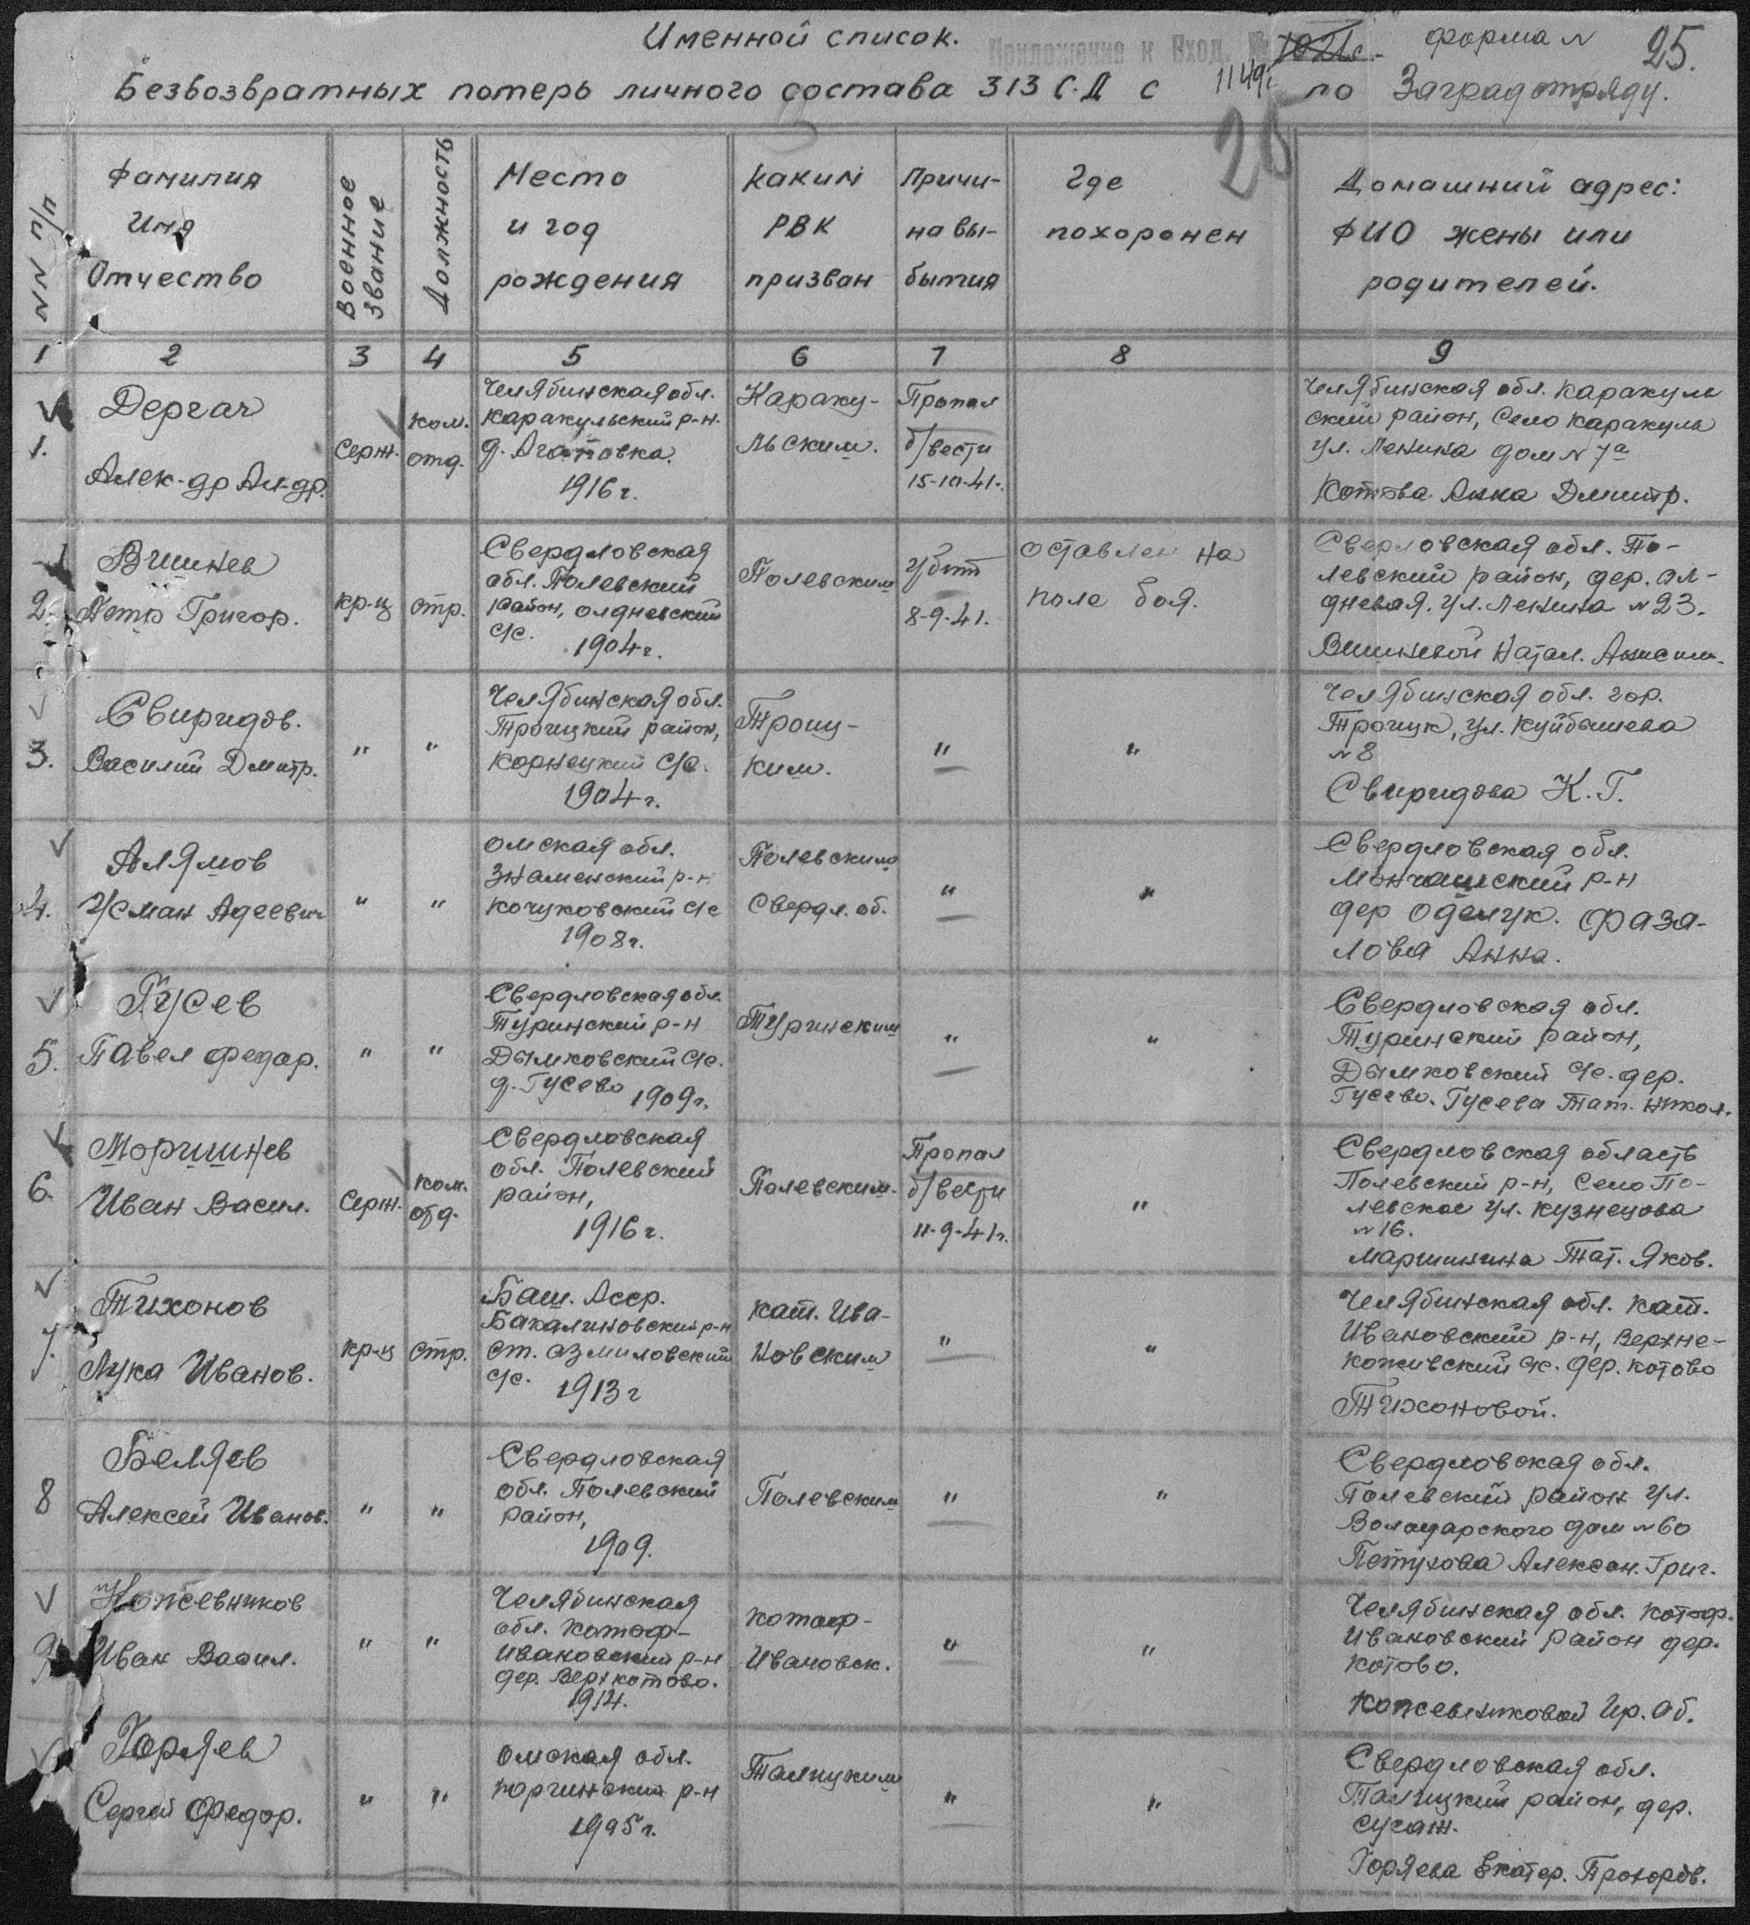 Именной список.
Приложение к Вход. №
1149с
форма №
25.
Безвозвратных потерь личного состава 313 С.Д с по Заградотряду.
26
NN п/п
Фамилия
Имя
Отчество
Военное
Звание
Должность
Место
и год
рождения
Каким
РВК
призван
Причи-
на вы-
бытия
Где
похоронен
Домашний адрес:
ФИО жены или
родителей.
1 2 3 4 5 6 7 8 9
1.
Дергач
Алек-др Ал-др.
Серж.
ком.
отд.
Челябинская обл.
Каракульский р-н.
д. Агаповка.
1916 г.
Караку-
льским.
Пропал
б/вести
15-10-41.
Челябинская обл. Каракуль
ский район, Село Каракуль
ул. Ленина дом N 7а
Котова Анна Дмитр.
2.
Вшинев
Петр Григор.
кр-ц
стр.
Свердловская
обл. Полевский
район, олдневский
с/с.
1904 г.
Полевским
Убит
8-9-41.
Оставлен на
поле боя.
Сверловская обл. По-
левский район, дер. Ол-
дневая. ул. Ленина N 23.
Вшиневой Натал. Анисим.
3.
Свиридов.
Василий Дмитр.
" "
Челябинская обл.
Троицкий район,
Корнецкий с/с.
1904 г.
Троиц-
ким.
" "
Челябинская обл. гор.
Троицк, ул. Куйбышева
N 8
Свиридова К. Г.
4.
Алямов
Усман Адеевич
" "
Омская обл.
Знаменский р-н
Кочуковский с/с
1908 г.
Полевским
Свердл. об.
" "
Свердловская обл.
Манчашский р-н
дер Фаза-
лова Анна.
5.
Гусев
Павел Федор.
" "
Свердловская обл.
Туринский р-н
Дымковский с/с.
д. Гусево 1909 г.
Туринским
" "
Свердловская обл.
Туринский район,
Дымковский с/с. дер.
Гусево. Гусева Тат. Никол.
6.
Моршинев
Иван Васил.
Серж.
ком.
отд.
Свердловская
обл. Полевский
район,
1916 г.
Полевским.
Пропал
б/вести
11-9-41 г.
"
Свердловская область
Полевский р-н, Село По-
левское ул. Кузнецова
N 16.
Маршинина Тат. Яков.
7.
Тихонов
Лука Иванов.
кр-ц
стр.
Баш. Асср.
Бакалиновский р-н
ст. азмиловский
с/с. 1913 г
Кат. Ива-
новским
" "
Челябинская обл. Кат.
Ивановский р-н, Верхне-
кожевский с/с. дер. Котово
Тихоновой.
8
Беляев
Алексей Иванов.
" "
Свердловская
обл. Полевский
район,
1909.
Полевским
" "
Свердловская обл.
Полевский район ул.
Волоцарского дом N 60
Петухова Алексан. Григ.
9
Кожевников
Иван Васил.
" "
Челябинская
обл. Катаф-
Ивановский р-н
дер. Верх Котово.
1914.
Котаф-
Ивановск.
" "
Челябинская обл. Котаф.
Ивановский район дер.
Котово.
Кожевниковой Ир. Аб.
Горяев
Сергей Федор.
" "
Омская обл.
Юргинский р-н
1905 г.
Талицким
" "
Свердловская обл.
Талицкий район, дер.
Сугат.
Горяева Екатер. Прохоров.